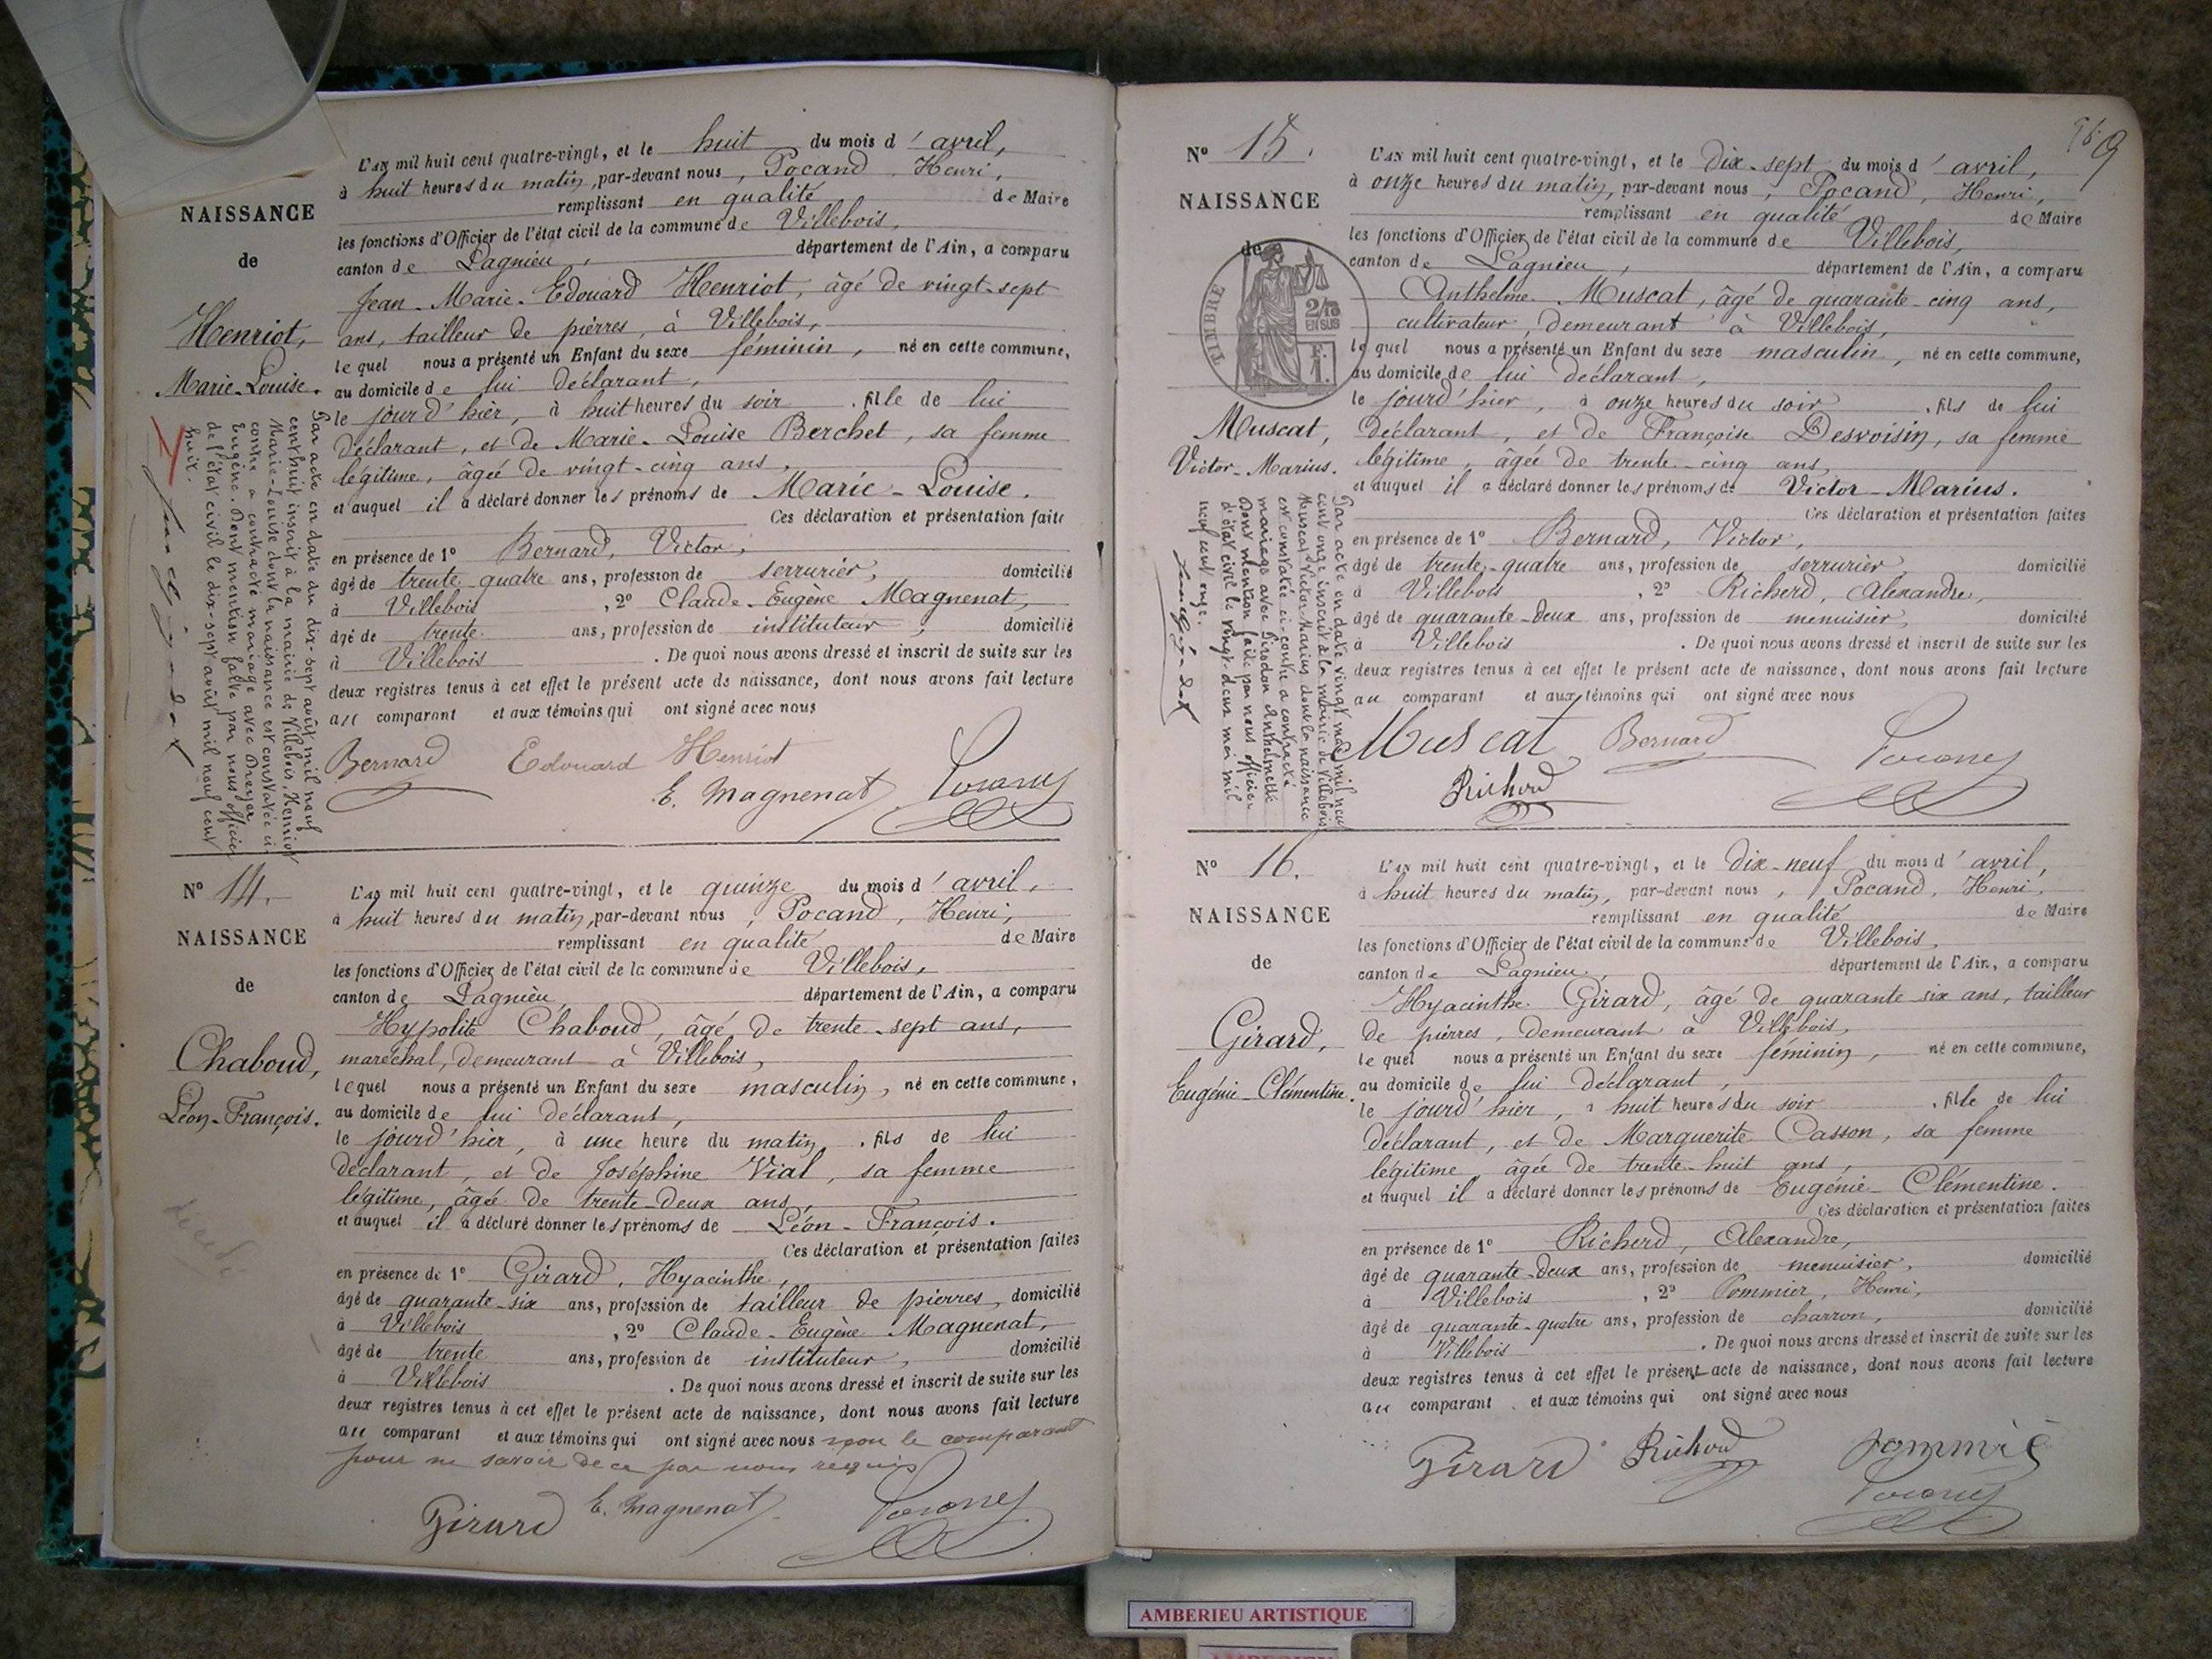 NAISSANCE
de
Henriot,
Marie-Louise.
L'an mil huit cent quatre-vingt, et le huit du mois d'avril,
à huit heures du matin, par-devant nous, Pocand, Henri,
remplissant en qualité de Maire
les fonctions d'Officier de l'état civil de la commune de Villebois,
canton de Lagnieu, département de l'Ain, a comparu
Jean-Marie-Edouard Henriot, âgé de vingt-sept
ans, tailleur de pierres, à Villebois,
lequel nous a présenté un Enfant du sexe féminin, né en cette commune,
au domicile de lui déclarant,
le jour d'hier, à huit heures du soir, fille de lui
déclarant, et de Marie-Louise Berchet, sa femme
légitime, âgée de vingt-cinq ans,
et auquel il a déclaré donner les prénoms de Marie-Louise.
Ces déclaration et présentation faites
en présence de 1º Bernard, Victor,
âgé de trente-quatre ans, profession de serrurier, domicilié
à Villebois, 2º Claude-Eugène Magnenat,
âgé de trente ans, profession de instituteur, domicilié
à Villebois. De quoi nous avons dressé et inscrit de suite sur les
deux registres tenus à cet effet le présent acte de naissance, dont nous avons fait lecture
au comparant et aux témoins qui ont signé avec nous
Par acte en date du dix-sept août mil neuf
cent huit inscrit à la mairie de Villebois, Henriot
Marie-Louise dont la naissance est constatée ci
contre a contracté mariage avec
Eugène. Dont mention faite par nous officier
de l'état civil le dix-sept août mil neuf cent
huit.
Bernard Edouard Henriot
E. Magnenat Pocand
Nº 14.
NAISSANCE
de
Chaboud,
Léon-François.
L'an mil huit cent quatre-vingt, et le quinze du mois d'avril,
à huit heures du matin, par-devant nous, Pocand, Henri,
remplissant en qualité de Maire
les fonctions d'Officier de l'état civil de la commune de Villebois,
canton de Lagnieu, département de l'Ain, a comparu
Hypolite Chaboud, âgé de trente-sept ans,
maréchal, demeurant à Villebois,
lequel nous a présenté un Enfant du sexe masculin, né en cette commune,
au domicile de lui déclarant,
le jour d'hier, à une heure du matin, fils de lui
déclarant, et de Joséphine Vial, sa femme
légitime, âgée de trente-deux ans,
et auquel il a déclaré donner les prénoms de Léon-François.
Ces déclaration et présentation faites
en présence de 1º Girard, Hyacinthe,
âgé de quarante-six ans, profession de tailleur de pierres, domicilié
à Villebois, 2º Claude-Eugène Magnenat,
âgé de trente ans, profession de instituteur, domicilié
à Villebois. De quoi nous avons dressé et inscrit de suite sur les
deux registres tenus à cet effet le présent acte de naissance, dont nous avons fait lecture
au comparant et aux témoins qui ont signé avec nous non le comparant
pour ne savoir de ce par nous requis
Girard E. Magnenat Pocand
9
Nº 15.
NAISSANCE
de
TIMBRE
2/10
EN SUS
F.
1.
Muscat,
Victor-Marius.
L'an mil huit cent quatre-vingt, et le dix-sept du mois d'avril,
à onze heures du matin, par-devant nous, Pocand, Henri,
remplissant en qualité de Maire
les fonctions d'Officier de l'état civil de la commune de Villebois,
canton de Lagnieu, département de l'Ain, a comparu
Anthelme Muscat, âgé de quarante-cinq ans,
cultivateur, demeurant à Villebois,
lequel nous a présenté un Enfant du sexe masculin, né en cette commune,
au domicile de lui déclarant,
le jourd'hier, à onze heures du soir, fils de lui
déclarant, et de Françoise Desvoisin, sa femme
légitime, âgée de trente-cinq ans,
et auquel il a déclaré donner les prénoms de Victor-Marius.
Ces déclaration et présentation faites
en présence de 1º Bernard, Victor,
âgé de trente-quatre ans, profession de serrurier, domicilié
à Villebois, 2º Richerd, Alexandre,
âgé de quarante-deux ans, profession de menuisier, domicilié
à Villebois. De quoi nous avons dressé et inscrit de suite sur les
deux registres tenus à cet effet le présent acte de naissance, dont nous avons fait lecture
au comparant et aux témoins qui ont signé avec nous
Par acte en date vingt mai mil neuf
cent onze inscrit à la mairie de Villebois
Muscat Victor Marius dont la naissance
est constatée ci-contre a contracté
mariage avec Girodon Anthelmette
Dont mention faite par nous officier
d'état civil le vingt-deux mai mil
neuf cent onze.
Muscat Bernard Pocand
Richerd
Nº 16.
NAISSANCE
de
Girard,
Eugénie-Clémentine.
L'an mil huit cent quatre-vingt, et le dix-neuf du mois d'avril,
à huit heures du matin, par-devant nous, Pocand, Henri,
remplissant en qualité de Maire
les fonctions d'Officier de l'état civil de la commune de Villebois,
canton de Lagnieu, département de l'Ain, a comparu
Hyacinthe Girard, âgé de quarante-six ans, tailleur
de pierres, demeurant à Villebois,
lequel nous a présenté un Enfant du sexe féminin, né en cette commune,
au domicile de lui déclarant,
le jourd'hier, à huit heures du soir, fille de lui
déclarant, et de Marguerite Casson, sa femme
légitime, âgée de trente-huit ans,
et auquel il a déclaré donner les prénoms de Eugénie-Clémentine.
Ces déclaration et présentation faites
en présence de 1º Richerd, Alexandre,
âgé de quarante-deux ans, profession de menuisier, domicilié
à Villebois, 2º Pommier, Henri,
âgé de quarante-quatre ans, profession de charron, domicilié
à Villebois. De quoi nous avons dressé et inscrit de suite sur les
deux registres tenus à cet effet le présent acte de naissance, dont nous avons fait lecture
au comparant et aux témoins qui ont signé avec nous
Girard Richerd Pommié
Pocand
AMBERIEU ARTISTIQUE